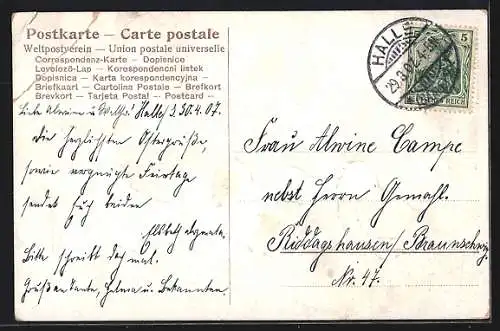 Postkarte — Carte postale
Weltpostverein — Union postale universelle
Correspondenz-Karte — Dopisnice
Levelező-Lap — Korespondenční listek
Dopisnica — Karta korespondencyjna —
Briefkaart — Cartolina Postale — Brefkort
Brevkort — Tarjeta Postal — Postcard —
Halle, 30.4.07.
Die herzlichsten Ostergrüße,
sowie vergnügte Feiertage
sendet Euch beiden
Elsbeth
Bitte schreibt doch mal.
Gruß an Tante, Helma u. Bekannten
HALLE
29.3.07. 4-5
5
DEUTSCHES REICH
Frau Alwine Campe
nebst Herrn Gemahl.
Riddagshausen/Braunschweig
Nr. 47.